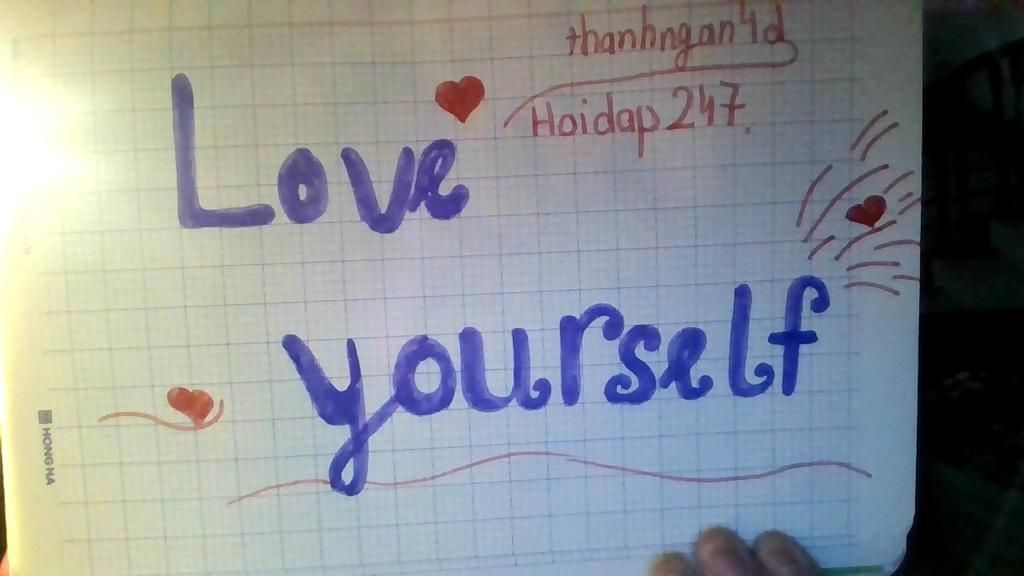 thanhngan4d
Hoidap 247.
Love
yourself
HONG HA